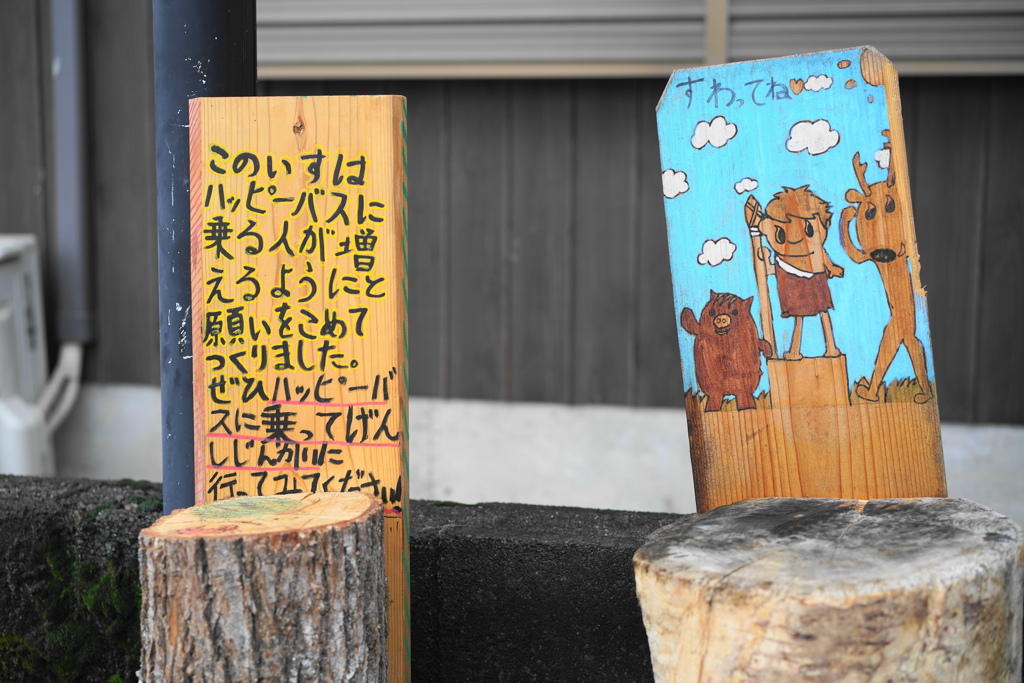 このいすは
ハッピーバスに
乗る人が増
えるようにと
願いをこめて
つくりました。
ぜひハッピーバ
スに乗ってげん
しじんかいに
行ってみてください!
すわってね